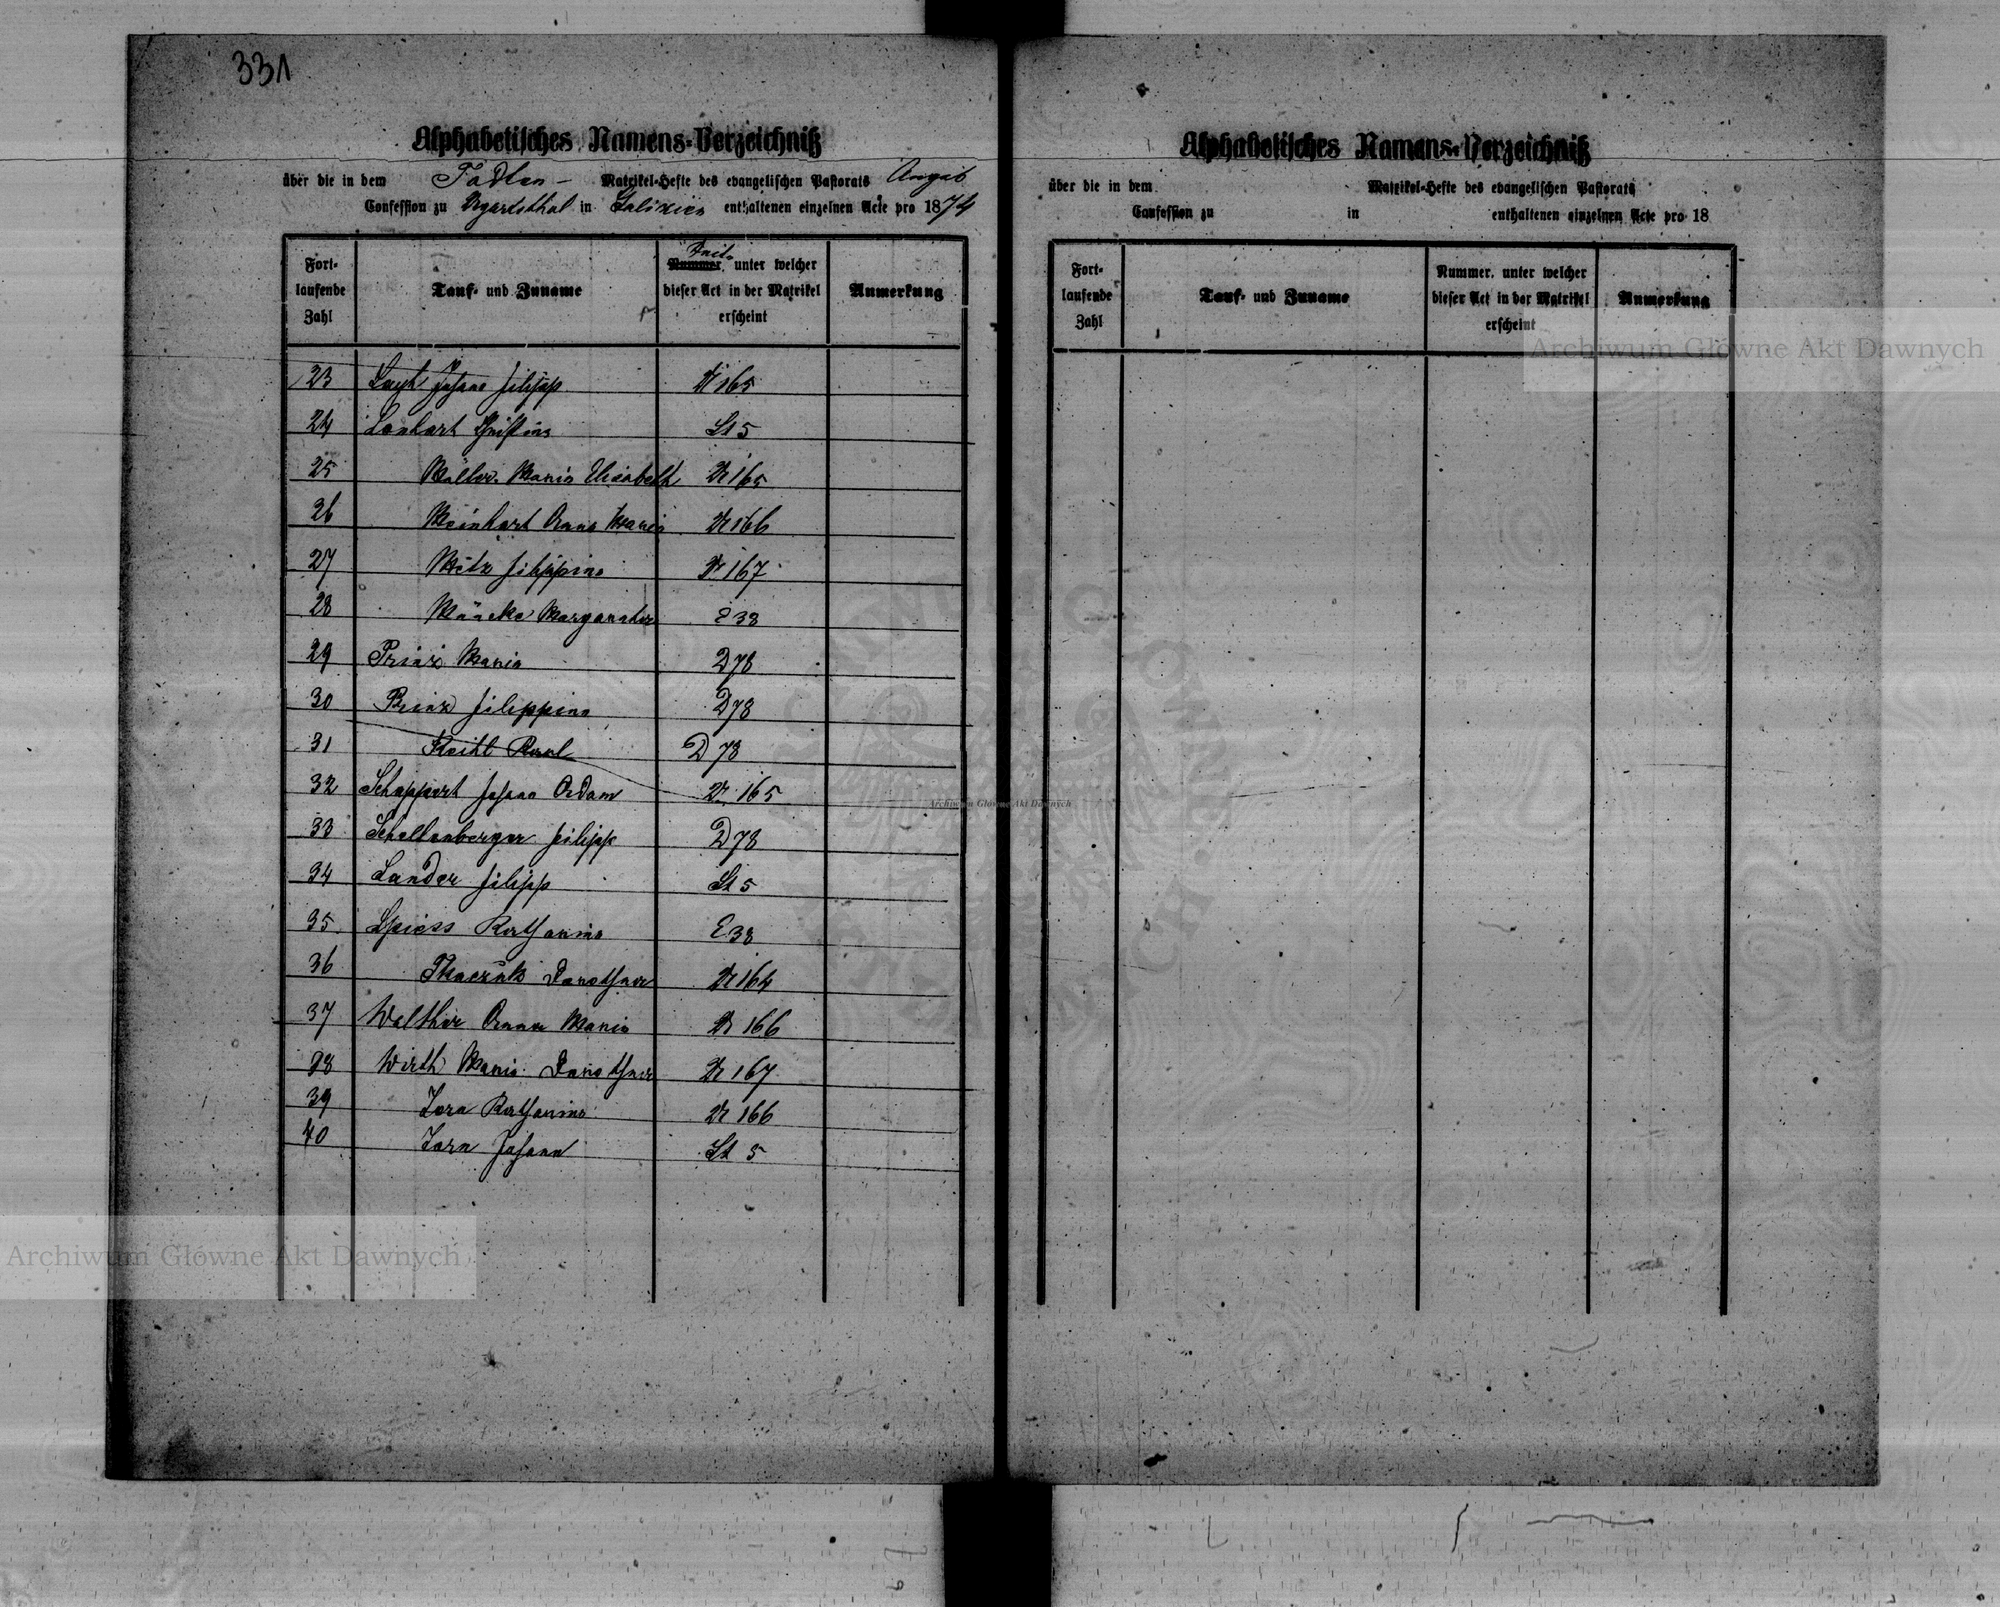 331
Alphabetisches Namens-Verzeichniß
über die in dem Todten- Matrikel-Hefte des evangelischen Pastorats Augsb
Confession zu Ugartsthal in Galizien enthaltenen einzelnen Acte pro 1874
Fort-
laufende
Zahl
Tauf- und Zuname
Nummer, unter welcher
dieser Act in der Matrikel
erscheint
Anmerkung
23 Johann Filipp 165
24 Christine St 5
25 Müller Maria Elisabeth 165
26 Meinhart Anna Maria 166
27 Metz Filippine 167
28 Margaretha E 38
29 Prinz Maria D 78
30 Prinz Filippine D 78
31 D 78
32 Schappert Johann Adam 165
33 Schellenberger Filipp D 78
34 Sander Filipp St 5
35 Spiess Katharina E 38
36 Dorothea 164
37 Walther Anna Maria 166
38 Wirth Maria Dorothea 167
39 Zorn Katharina 166
40 Zorn Johann St 5
Alphabetisches Namens-Verzeichniß
über die in dem Matrikel-Hefte des evangelischen Pastorats
Confession zu in enthaltenen einzelnen Acte pro 18
Fort-
laufende
Zahl
Tauf- und Zuname
Nummer, unter welcher
dieser Act in der Matrikel
erscheint
Anmerkung
Archiwum Główne Akt Dawnych
Archiwum Główne Akt Dawnych
Archiwum Główne Akt Dawnych